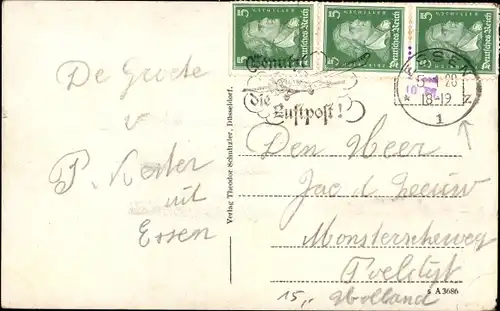 De Groete
v
P. Kester
uit
Essen
Verlag Theodor Schultzler, Düsseldorf.
5 F.v.SCHILLER Deutsches Reich
5 F.v.SCHILLER Deutsches Reich
5 F.v.SCHILLER Deutsches Reich
Benutzt
die
Luftpost!
ESSEN
28
18-19
1
Den Heer
Jac d Leeuw
Monsterscheweg
Poeldijk
Holland
15,-
s A 3686